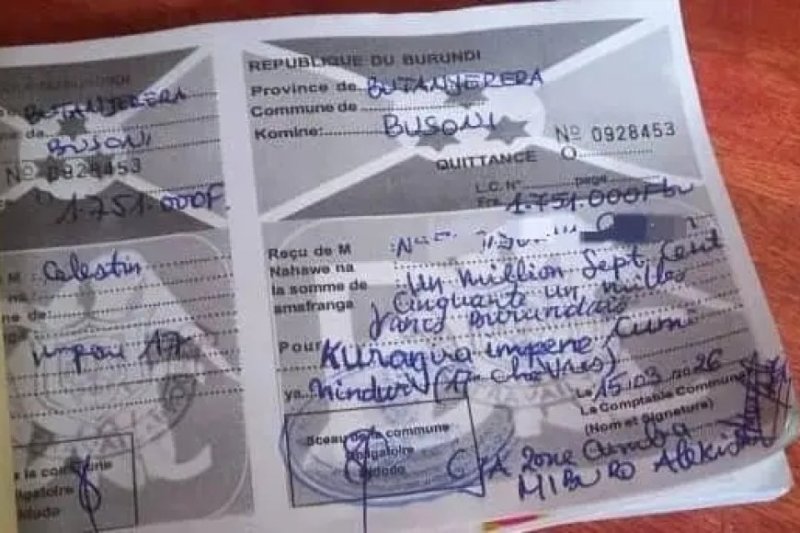 BURUNDI
BUTANYERERA
BUSONI
Nº 0928453
1.751.000F
Celestin
17
la commune
REPUBLIQUE DU BURUNDI
Province de BUTANYERERA
Commune de
Komine: BUSONI
Nº 0928453
QUITTANCE
L.C. Nº page
1.751.000Fbu
Reçu de M
Nahawe na
la somme de Un million Sept Cent
amafranga Cinquante un milles
francs Burundais
Pour Kuragura impene Cumi
ya (17 chèvres)
Le 15.03.2026
Le Comptable Communal
(Nom et Signature)
Sceau de la commune
C/A Zone
MIBURO